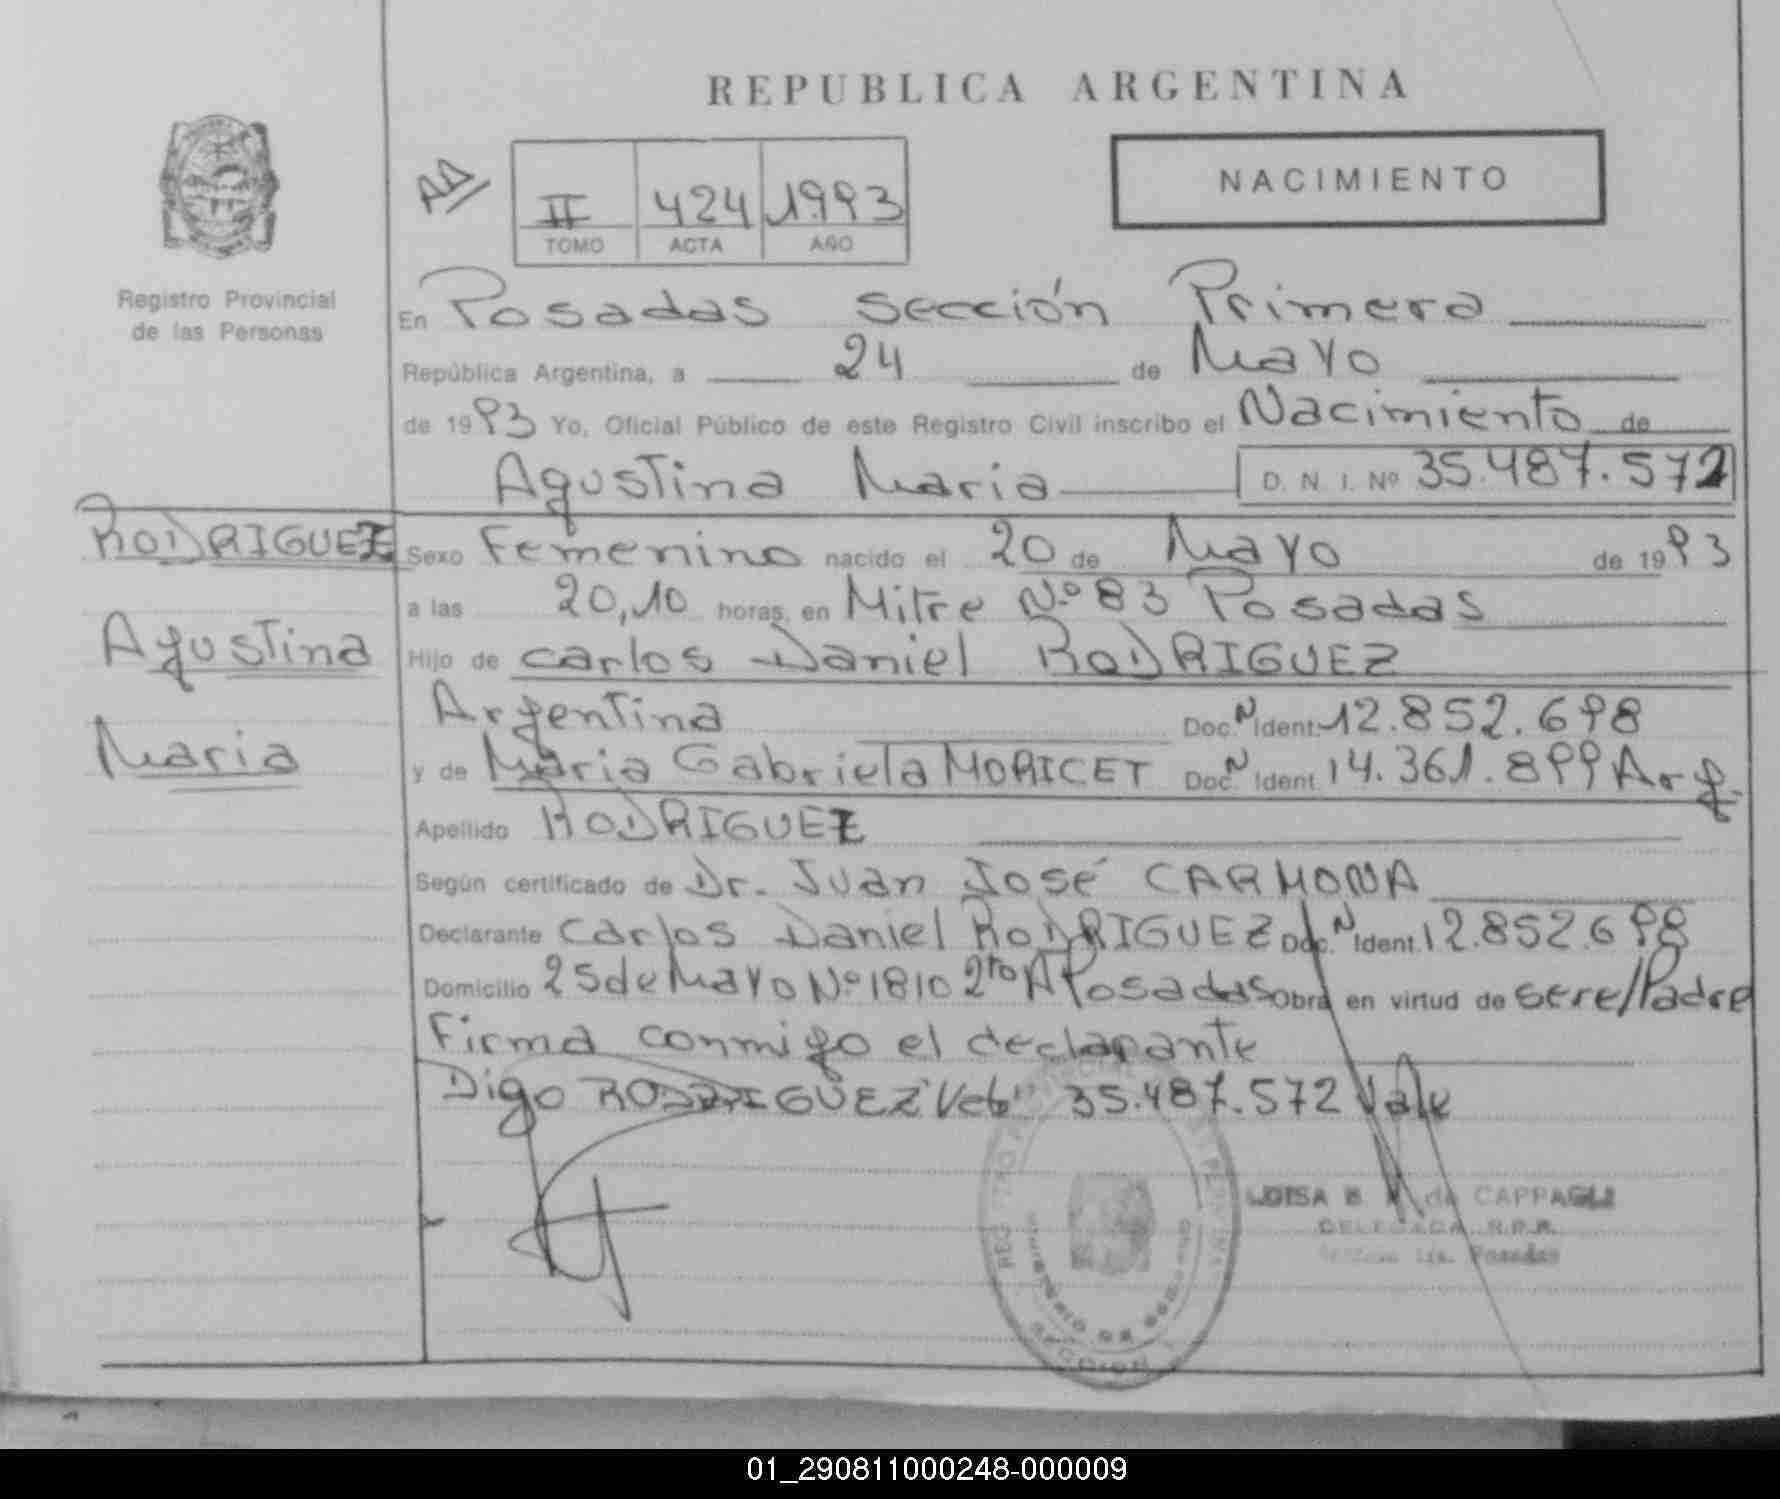 REPUBLICA ARGENTINA
NACIMIENTO
II 424 1993
TOMO ACTA AÑO
Registro Provincial
de las Personas
En Posadas sección Primera
República Argentina, a 24 de Mayo
de 1993 Yo, Oficial Público de este Registro Civil inscribo el Nacimiento de
Agustina Maria D. N. I. Nº 35.487.572
RODRIGUEZ
Agustina
Maria
Sexo Femenino nacido el 20 de Mayo de 1993
a las 20,10 horas, en Mitre Nº 83 Posadas
Hijo de Carlos Daniel RODRIGUEZ
Argentina Doc. N Ident. 12.852.698
y de Maria Gabriela MORICET Doc. N Ident. 14.361.899 Arg.
Apellido RODRIGUEZ
Según certificado de Dr. Juan José CARMONA
Declarante Carlos Daniel RODRIGUEZ Doc. N Ident. 12.852.698
Domicilio 25 de Mayo Nº 1810 2to A Posadas Obra en virtud de sere/Padre
Firma conmigo el declarante
Digo RODRIGUEZ 35.487.572 Vale
LUISA B de CAPPAGLI
DELEGADA R.P.P.
Posadas
MINISTERIO DE GOBIERNO
SECCION
01_290811000248-000009